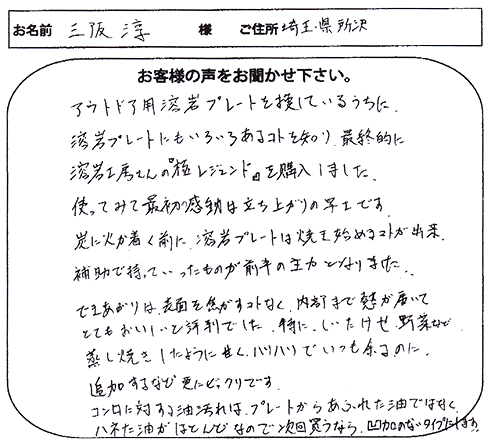 お名前 三阪 淳 様 ご住所 埼玉県所沢
お客様の声をお聞かせ下さい。
アウトドア用溶岩プレートを探しているうちに、
溶岩プレートにもいろいろあるコトを知り、最終的に
溶岩工房さんの『極レジェンド』を購入しました。
使ってみて最初の感動は立ち上がりの早さです。
炭に火が着く前に、溶岩プレートは焼き始めるコトが出来、
補助で持っていったものが前半の主力となりました。
できあがりは、表面を焦がすコトなく、内部まで熱が届いて
とてもおいしいと評判でした。特に、しいたけや野菜など
蒸し焼きしたように甘く、ハリハリでいつも余るのに、
追加するなど更にビックリです。
コンロに対する油汚れは、プレートからあふれた油ではなく、
ハネた油がほとんどなので次回買うなら、凹加のないタイプにします!!